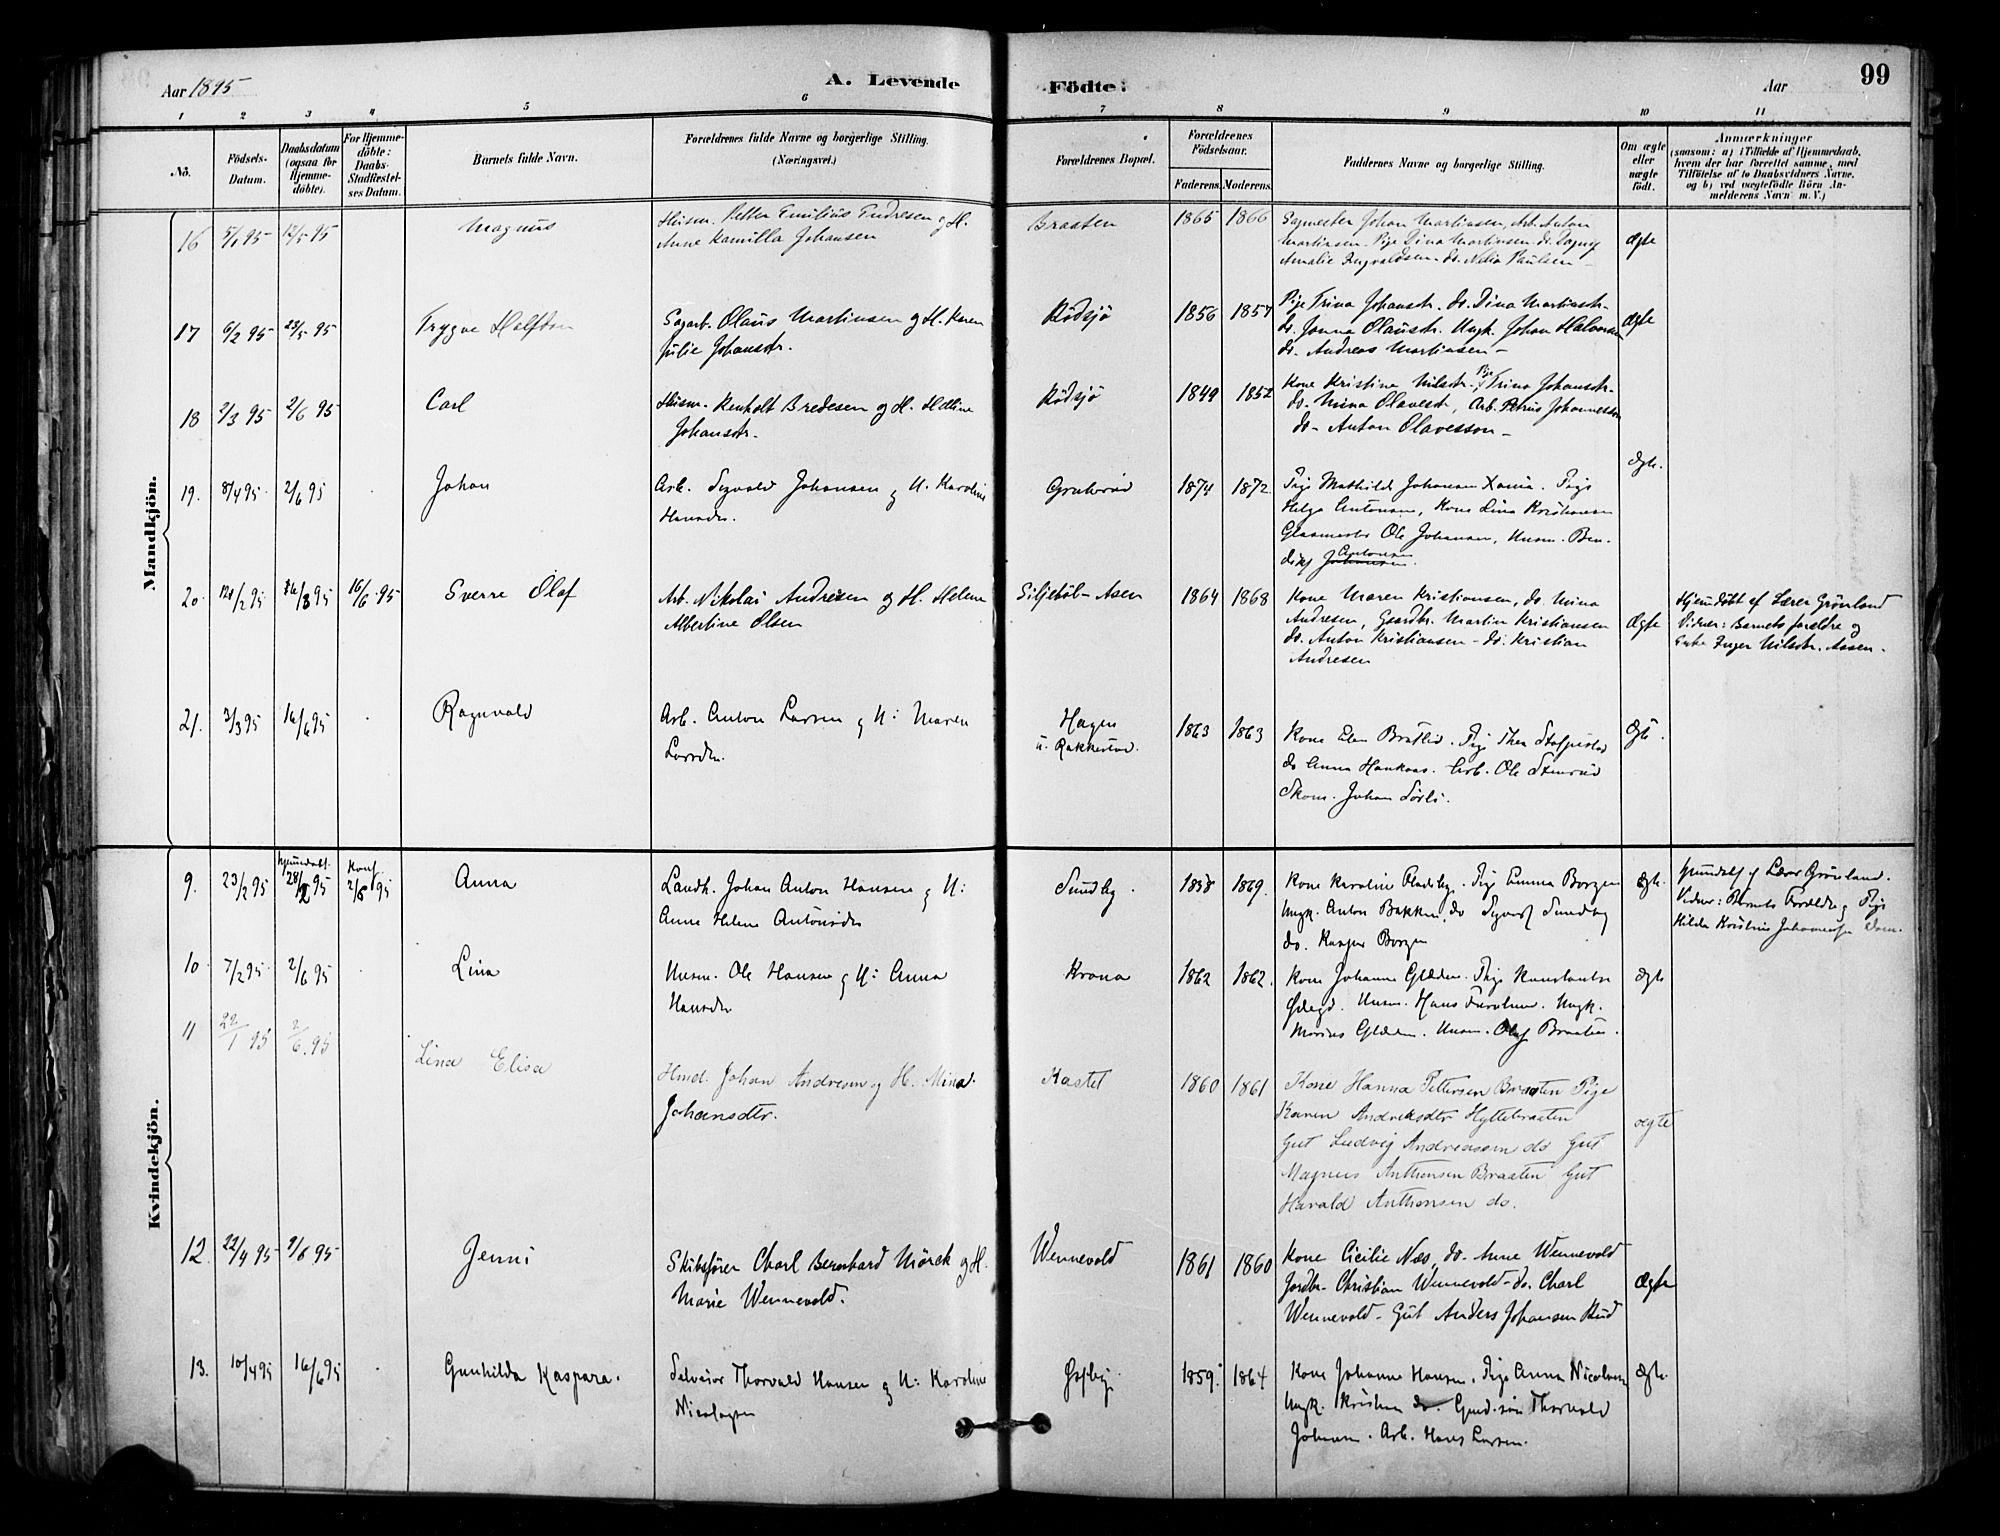 Aar 1895
A. Levende
Födte:
Aar
99
1 2 3 4 5 6 7 8 9 10 11
No.
Födsels-Datum.
Daabsdatum (ogsaa for Hjemme-döbte).
For Hjemme-döbte: Daabs-Stadfæstel-ses Datum.
Barnets fulde Navn.
Forældrenes fulde Navne og borgerlige Stilling. (Næringsvei.)
Forældrenes Bopæl.
Forældrenes Födselsaar.
Faderens. Moderens.
Faddernes Navne og borgerlige Stilling.
Om ægte eller uægte födt.
Anmærkninger
(saasom: a) i Tilfælde af Hjemmedaab, hvem der har forrettet samme, med Tilföielse af to Daabsvidners Navne, og b) ved uægtefödte Börn An-melderens Navn m. V.)
Mandkjön.
16 5/1 95 12/5 95 Magnus Husm. Petter Emilius Endresen og H. Braaten 1865 1866 Sagmester Johan Martinsen, Arb. Anton
Anne Kamilla Johansen Martinsen. Pige Dina Martinsen. do. Dagny Ægte
Amalie Ingvaldsen. do. Nelia Paulsen –
17 6/2 95 23/5 95 Trygve Halfdan Sagarb. Olaus Martinsen og H. Karen Rödsjø 1856 1857 Pige Trina Johansdr. do. Dina Martinsdr. Ægte
Julie Johansdr. do. Janna Olausdr. Ungk. Johan Halvorsen
do. Andreas Martinsen –
18 2/3 95 2/6 95 Carl Husm. Renholt Bredesen og H. Helline Rödsjø 1849 1852 Kone Kristine Nilsdr. Pige Trina Johansdr.
Johansdr. do. Mina Olavesdr, Arb. Petrus Johannesson
do – Anton Olavesson –
Ægte.
19. 8/4 95 2/6 95 Johan Arb. Sigvald Johansen og H. Karoline 1874 1872 Pige Mathilde Johansen Pige
Hansdr. Helga Antonsen, Kone Lina Kristiansen
Glasmester Ole Johansen, Husm. Ben-
dikt Antonsen Johansen.
20. 12/2 95 16/6 95 Sverre Olaf Arb. Nikolai Andresen og H. Helene Siljeböl-Asen 1864 1868 Kone Maren Kristiansen, do. Mina
Albertine Olsen Andresen, Gaardbr. Martin Kristiansen Ægte
do. Anton Kristiansen – do. Kristian
Andresen
Hjemdöbt af Lærer Grönland
Vidner: Barnets forældre og
Enke Inger Nilsdr. Aasen.
21. 3/3 95 16/6 95 Ragnvald Arb. Anton Larsen og H: Maren Hagen 1863 1863 Kone Elen Bratlid. Pige Thea Ægte.
Larsdr. u. Rakkestad. do Anna Haukaas. Arb. Ole Stenrud
Skom. Johan Sörli.
Kvindekjön.
9. 23/2 95 hjemdöbt 28/2 95 Konf. 2/6 95 Anna Landh. Johan Anton Hansen og H: Sundby. 1858 1869. Kone Karoline Pige Emma Borgen Ægte.
Anne Helene Antonsdr Ungk. Anton Bakken, do Sigvart Sundby
do. Kasper Borgen
Hjemdöbt af Lærer Grönland.
Vidner: Barnets Forældre og Pige
Hilda Kristine Johannesen
10. 7/2 95 2/6 95 Lina Husm. Ole Hansen og H: Anna Krona 1862 1862. Kone Johanne Glæden. Pige Konstanse Ægte
Hansdr Ödegd. Husm. Hans Ungk.
Marius Glæden. Husm. Olaf Braaten.
11 22/1 95 2/6.95 Lina Elisa Hmd. Johan Andresen og H. Mina Kastet 1860 1861 Kone Hanna Pettersen Braaten Pige
Johansdtr. Karen Andreasdtr Hyttebraaten ægte
Gut Ludvig Andreassen do Gut
Magnus Anthonsen Braaten Gut
Harald Anthonsen do.
12. 22/4 95 9/6 95 Jenni Skibsfører Charl Bernhard Mörck og H. Wennevold 1861 1860 Kone Cicilie Næs, do. Anne Wennevold
Marie Wennevold. Jordbr. Christian Wennevold – do. Charl Ægte
Wennevold – Gut Anders Johansen Rud
13. 10/4 95 16/6 95 Gunhilda Kaspara. Selveier Thorvald Hansen og H: Karoline Gefby. 1859. 1864 Kone Johanne Hansen. Pige Anna Nicolaisen Ægte.
Ungk. Kristian do. Gmd.sön Thorvald
Johansen. Arb. Hans Larsen.